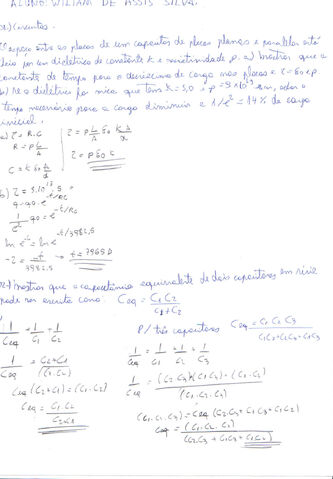 ALUNO: WILIAM DE ASSIS SILVA.
01-) Circuitos.
O espaço entre as placas de um capacitor de placas planas e paralelas está
cheio por um dielétrico de constante k e resistividade ρ. a) mostrar que a
constante de tempo para o decréscimo de carga nas placas é τ = ε0kρ.
b) Se o dielétrico for mica que tem k = 5,0 e
tempo necessário para a carga diminuir a 1/e² = 14% da carga
inicial.
a) τ = R.C
R = ρ L/A
C = k ε0 A/d
τ = ρ L/A ε0 k A/d
q = q0 e^-t/RC
1/e² q0 = e^-t/RC
ln e^-2 = ln e^-t/3982,5
-2 = -t/3982,5 → t = 7965 s
02-) Mostrar que a capacitância equivalente de dois capacitores em série
pode ser escrita como: Ceq = C1 C2 / C1 + C2
1/Ceq = 1/C1 + 1/C2
1/Ceq = C2 + C1 / (C1 . C2)
Ceq (C2 + C1) = (C1 . C2)
Ceq = C1 . C2 / C2 + C1
P/ três capacitores Ceq = C1 C2 C3 / C1C2 + C1C3 + C2C3
1/Ceq = 1/C1 + 1/C2 + 1/C3
1/Ceq = (C2 . C3) + (C1 C3) + (C1 . C2) / (C1 . C2 . C3)
(C1 . C2 . C3) = Ceq (C2 . C3 + C1 C3 + C1 C2)
Ceq = (C1 . C2 . C3) / (C2 C3 + C1 C3 + C1 C2)